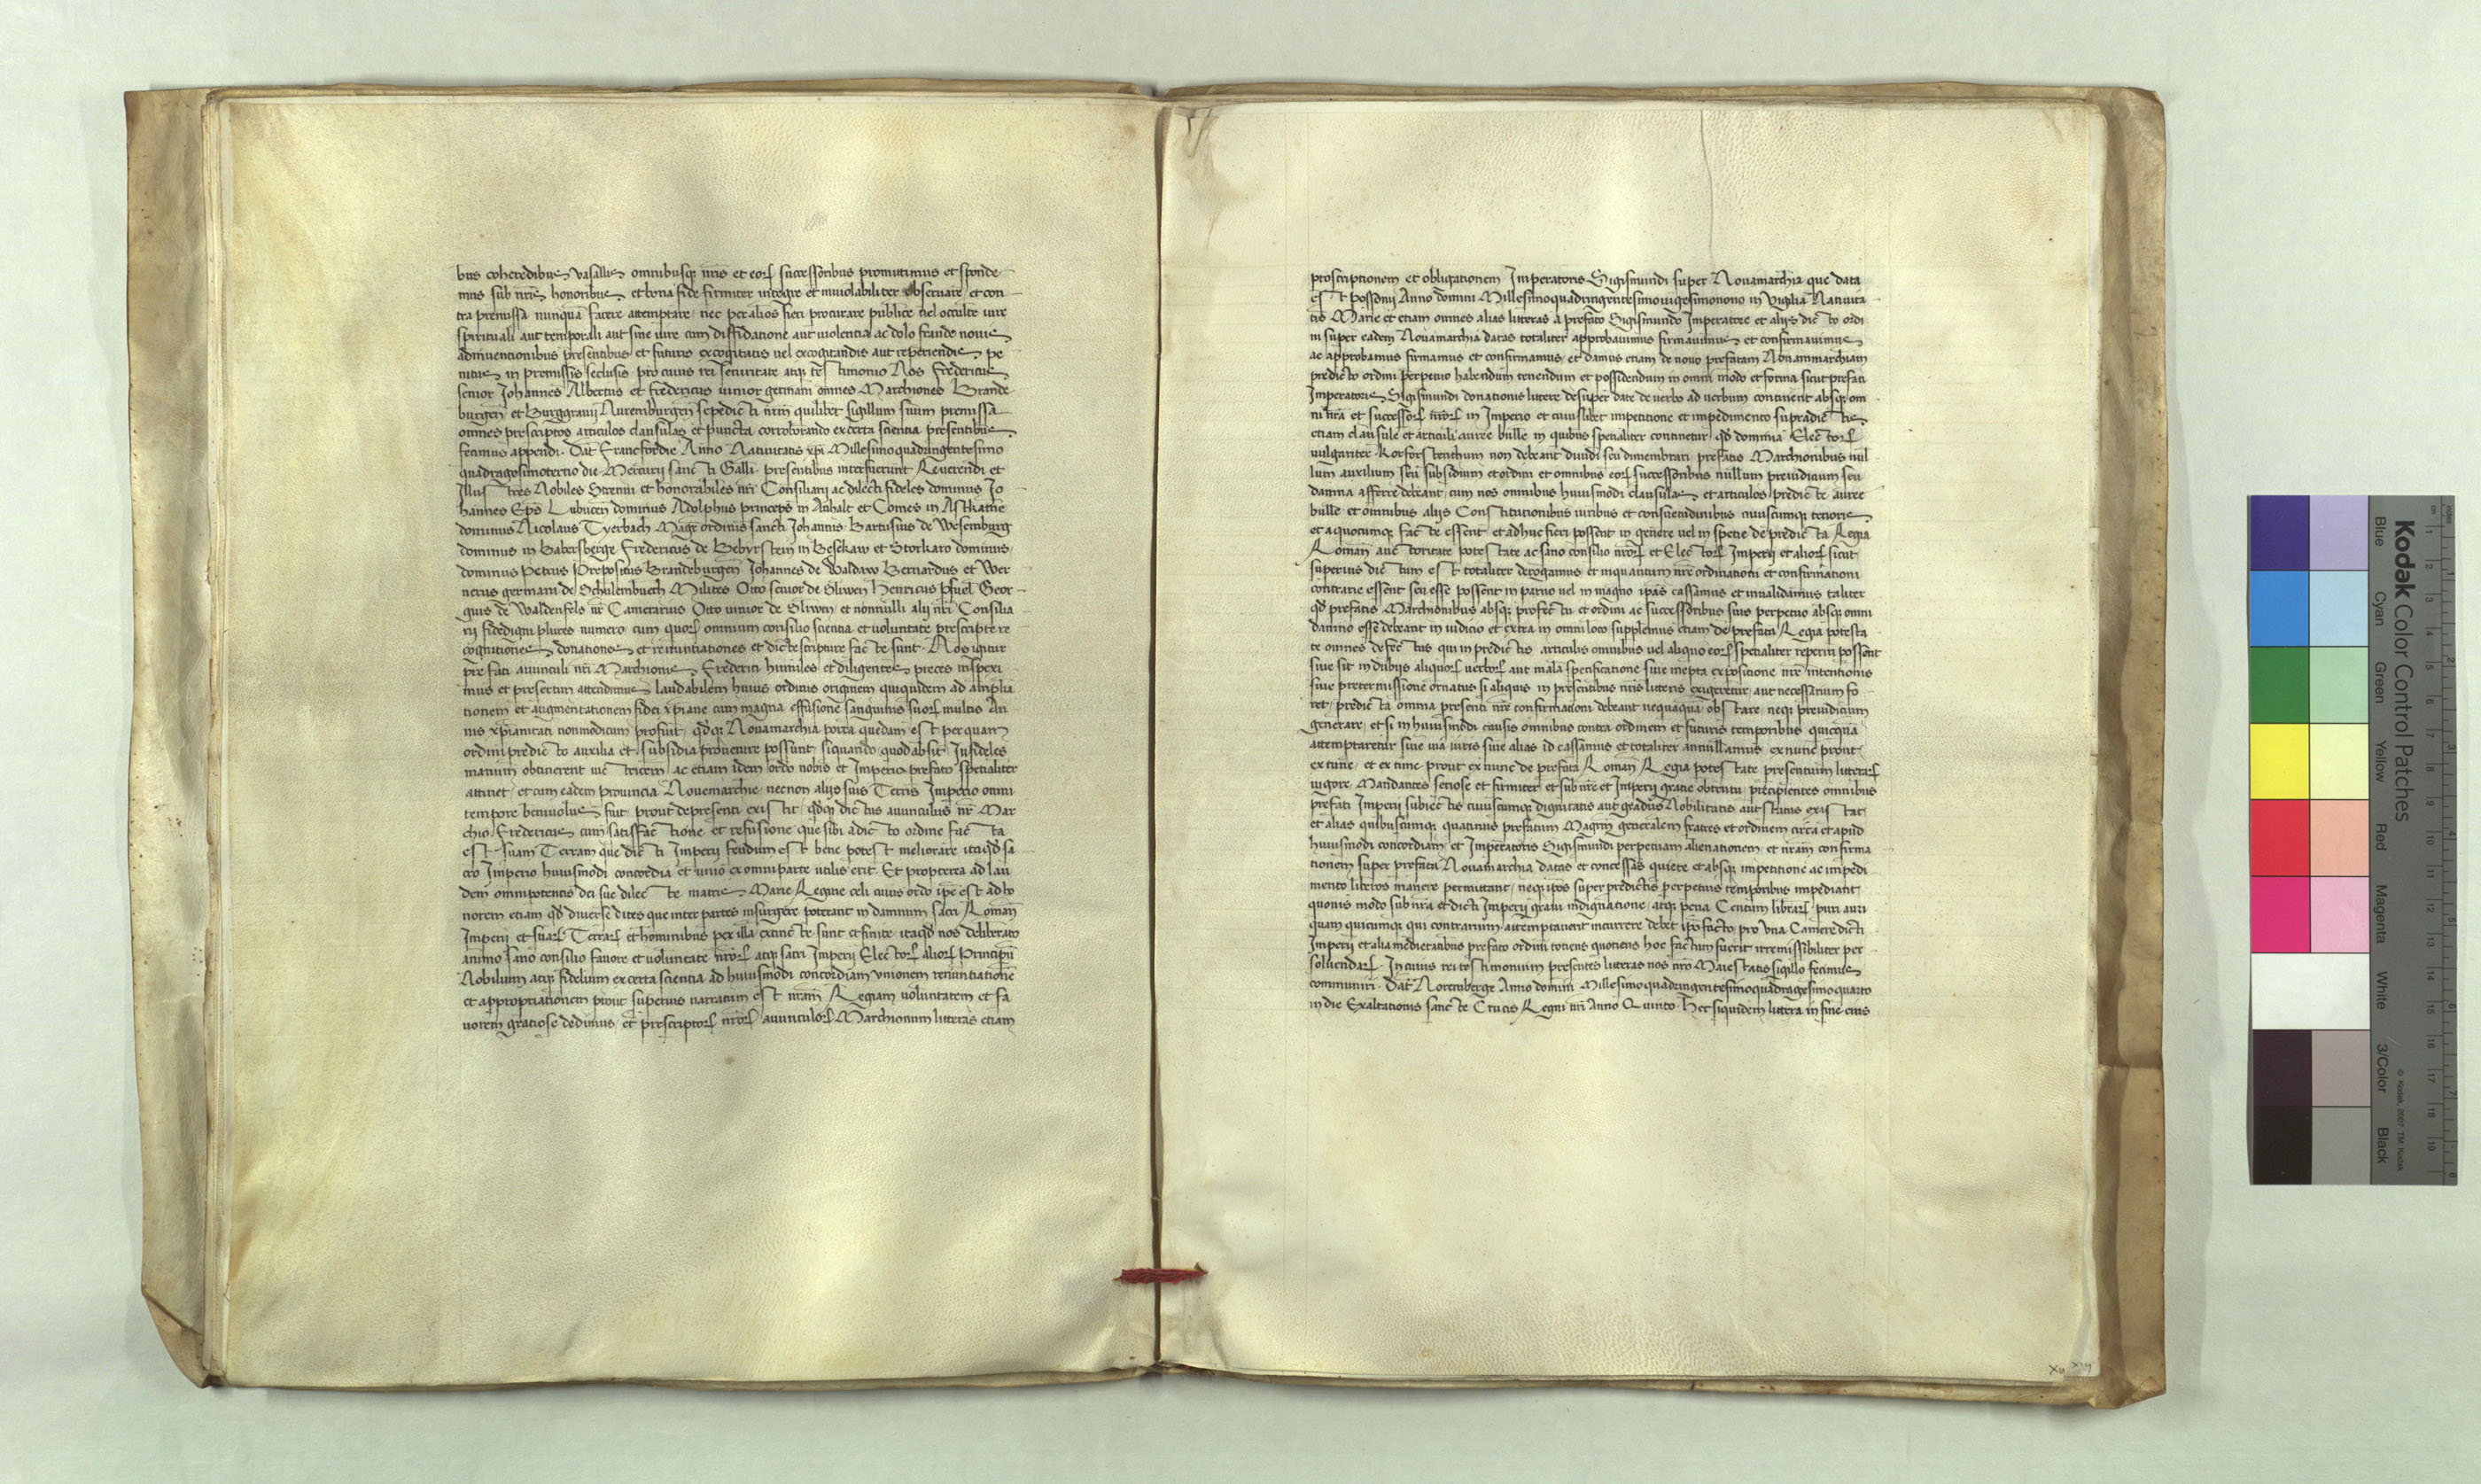 bus coheredibus vasallis omnibusq; nris et eor successoribus promittimus et sponde
mus sub nris honoribus et bona fide firmiter integre et inuiolabiliter obseruare et con
tra premissa nunquā facere attemptare nec per alios fieri procurare publice uel occulte iure
spirituali aut temporali aut sine iure cum diffidatione aut violentia ac dolo fraude nouis
adinuentionibus presentibus et futuris excogitatis uel excogitandis aut reperiendis pe
nitus in premissis seclusis pro cuius rei securitate atq; testimonio Nos Fredericus
senior Johannes Albertus et fredericus iunior germani omnes Marchiones Brande
burgen̄ et Burggrauij Nuremburgen̄ sepedicti nrm̄ quilibet sigillum suum premissa
omnes prescriptos articulos clausulas et puncta corroborando ex certa scientia presentibus
fecimus appendi. Dat̄ Francfordie Anno Natiuitatis xp̄i Millesimoquadringentesimo
quadragesimotertio die Mercurij sancti Galli. presentibus interfuerunt Reuerendi et
Illustres Nobiles Strenui et honorabiles nr̄i Consiliarij ac dilecti fideles dominus Jo
hannes Ep̄s Lubucen̄ dominus Adolphus princeps in Anhalt et Comes in Askanie
dominus Nicolaus Tyerbach Magr̄ ordinis sancti Johannis Bartusius de Wesemburg
dominus in Babersberge Fredericus de Bebyrstein in Beskaw et Storkaro dominus
dominus Petrus Prepositus Brandeburgen̄ Johannes de Waldaw Bernardus et Wer
nerus germani de Schulemburch Milites Otto senior de Sliwen Henricus pfuel Geor
gius de Waldenfels nr̄ Camerarius Otto iunior de Sliwen et nonnulli alij nr̄i Consilia
rij fidedigni plures numero cum quor omnium consilio scientia et uoluntate prescripte re
cognitiones donationes et renuntiationes et dicte scripture facte sunt. Nos igitur
prefati auunculi nr̄i Marchionis Frederici humiles et diligentes preces inspexi
mus et presertim attendimus laudabilem huius ordinis originem quiquidem ad amplia
tionem et augmentationem fidei xp̄iane cum magna effusione sanguinis suor multis An
nis xp̄ianitati nonmodicum profuit qdq; Nouamarchia porta quedam est per quam
ordini predicto auxilia et subsidia prouenire possunt siquando quod absit Infideles
manum obtinerent uictricem ac etiam idem ordo nobis et Imperio prefato spetialiter
attinet et cum eadem prouincia Nouemarchie necnon alijs suis Terris Imperio omni
tempore beniuolus fuit prout depresenti existit qdq; dictus auunculus nr̄ Mar
chio Fredericus cum satisfactione et refusione que sibi a dicto ordine facta
est suam Terram que dicti Imperij feudum est bene potest meliorare itaqd sa
cro Imperio huiusmodi concordia et unio ex omni parte utilis erit. Et propterea ad lau
dem omnipotentis dei sue dilecte matris Marie Regine celi cuius ordo ip̄e est ad ho
norem etiam qd diuerse lites que inter partes insurgere poterant in damnum sacri Roman̄
Imperij et suar Terrar et hominibus per illa extincte sunt et finite itaqd nos deliberato
animo sano consilio fauore et uoluntate nr̄or atq; sacri Imperij Elector alior Principū
Nobilium atq; fidelium ex certa scientia ad huiusmodi concordiam vnionem renuntiationē
et appropriationem prout superius narratum est nr̄am Regiam uoluntatem et fa
uorem gratiose dedimus et prescriptor nr̄or auunculor Marchionum litteras etiam
proscriptionem et obligationem Imperatoris Sigismundi super Nouamarchia que data
est possonij Anno domini Millesimoquadringentesimouigesimonono in Vigilia Natiuita
tis Marie et etiam omnes alias litteras a prefato Sigismundo Imperatore et alijs dicto ordi
ni super eadem Nouamarchia datas totaliter approbauimus firmauimus et confirmauimus
ac approbamus firmamus et confirmamus et damus etiam de nouo prefatam Nouammarchiam
predicto ordini perpetuo habendum tenendum et possidendum in omni modo et forma sicut prefati
Imperatoris Sigismundi donationis littere desuper date de uerbo ad uerbum continent absq; om
ni nr̄a et successor nr̄or in Imperio et cuiuslibet impetitione et impedimento supradictis
etiam clausule et articuli auree bulle in quibus spetialiter continetur qd dominia Elector
uulgariter Korforstenthum non debeant diuidi seu dimembrari prefatis Marchionibus nul
lum auxilium seu subsidium et ordini et omnibus eor successoribus nullum preiudicium seu
damna afferre debeant cum nos omnibus huiusmodi clausulas et articulos predicte auree
bulle et omnibus alijs Constitutionibus iuribus et consuetudinibus cuiuscumq; tenoris
et a quocumq; facte essent et adhuc fieri possent in genere uel in spetie de predicta Regia
Roman̄ auctoritate potestate ac sano consilio nr̄or et Elector Imperij et alior sicut
superius dictum est totaliter derogamus et inquantum nr̄e ordinationi et confirmationi
contrarie essent seu esse possent in paruo uel in magno ip̄as cassamus et inualidamus taliter
qd prefatis Marchionibus absq; profectu et ordini ac successoribus suis perpetuo absq; omni
damno esse debeant in iudicio et extra in omni loco supplemus etiam de prefata Regia potesta
te omnes defectus qui in predictis articulis omnibus uel aliquo eor spetialiter reperiri possent
siue sit in dubijs aliquor uerbor aut mala specificatione siue inepta expositione nr̄e intentionis
siue pretermissione ornatus si aliquis in presentibus nr̄is litteris exigeretur aut necessarium fo
ret predicta omnia presenti nr̄e confirmationi debeant nequaquā obstare neq; preiudicium
generare et si in huiusmodi causis omnibus contra ordinem et futuris temporibus quicquā
attemptaretur siue uia iuris siue alias id cassamus et totaliter annullamus ex nunc prout
ex tunc et ex tunc prout ex nunc de prefata Roman̄ Regia potestate presentium litterar
uigore Mandantes seriose et firmiter et sub nr̄e et Imperij gratie obtentu precipientes omnibus
prefati Imperij subiectis cuiuscumq; dignitatis aut gradus Nobilitatis aut status existāt
et alias quibuscumq; quatinus prefatum Magrm̄ generalem fratres et ordinem circa et apud
huiusmodi concordiam et Imperatoris Sigismundi perpetuam alienationem et nr̄am confirma
tionem super prefata Nouamarchia datas et concessas quiete et absq; impetitione ac impedi
mento liberos manere permittant neq; ip̄os super predictis perpetuis temporibus impediant
quouis modo sub nr̄a et dicti Imperij graui indignatione atq; pena Centum librar puri auri
quam quicumq; qui contrarium attemptauerit incurrere debet ip̄o facto pro vna Camere dicti
Imperij et alia medietatibus prefato ordini totiens quotiens hoc factum fuerit irremissibiliter per
soluendar. In cuius rei testimonium presentes litteras nos nr̄o Maiestatis sigillo fecimus
communiri. Dat̄ Noremberge Anno domini Millesimoquadringentesimoquadragesimoquarto
in die Exaltationis sancte Crucis Regni nr̄i Anno Quinto. Hec siquidem littera in fine eius
xij xiij
Kodak Color Control Patches
Blue Cyan Green Yellow Red Magenta White 3/Color Black
© Kodak, 2007 TM: Kodak